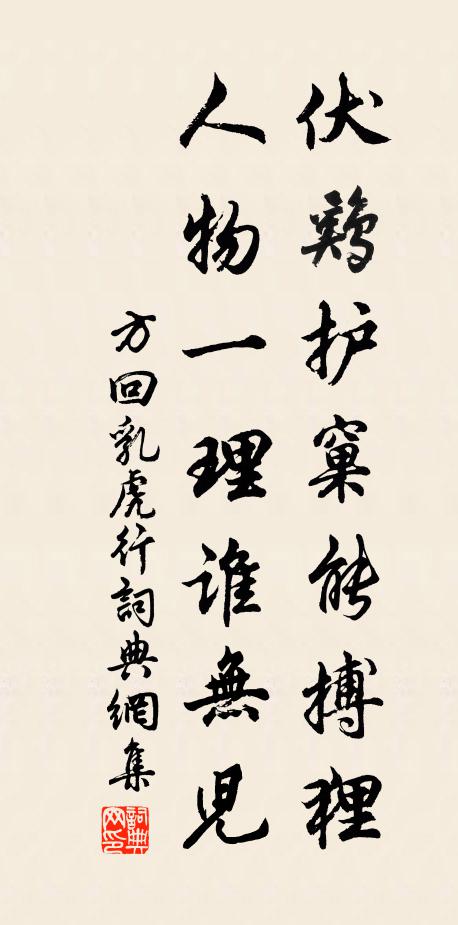 伏鷄护窠能搏狸
人物一理谁無児
方回乳虎行詞典網集
詞典网印